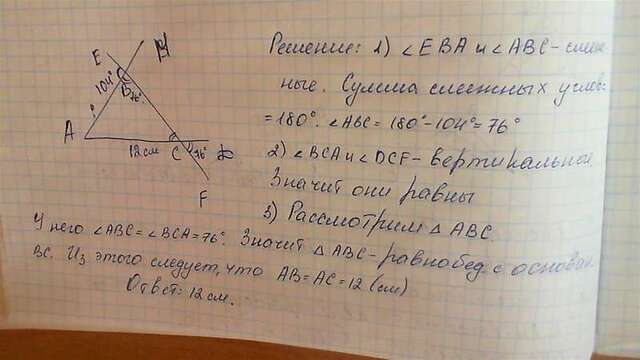 E
M
104°
B
76°
?
A
12 см
C
76°
D
F
Решение: 1) ∠EBA и ∠ABC - смеж-
ные. Сумма смежных углов=
=180°. ∠ABC = 180°-104°=76°
2) ∠BCA и ∠DCF - вертикальные
Значит они равны
3) Рассмотрим △ ABC.
У него ∠ABC=∠BCA=76°. Значит △ ABC - равнобед. с основан.
BC. Из этого следует, что AB=AC=12 (см)
Ответ: 12 см.